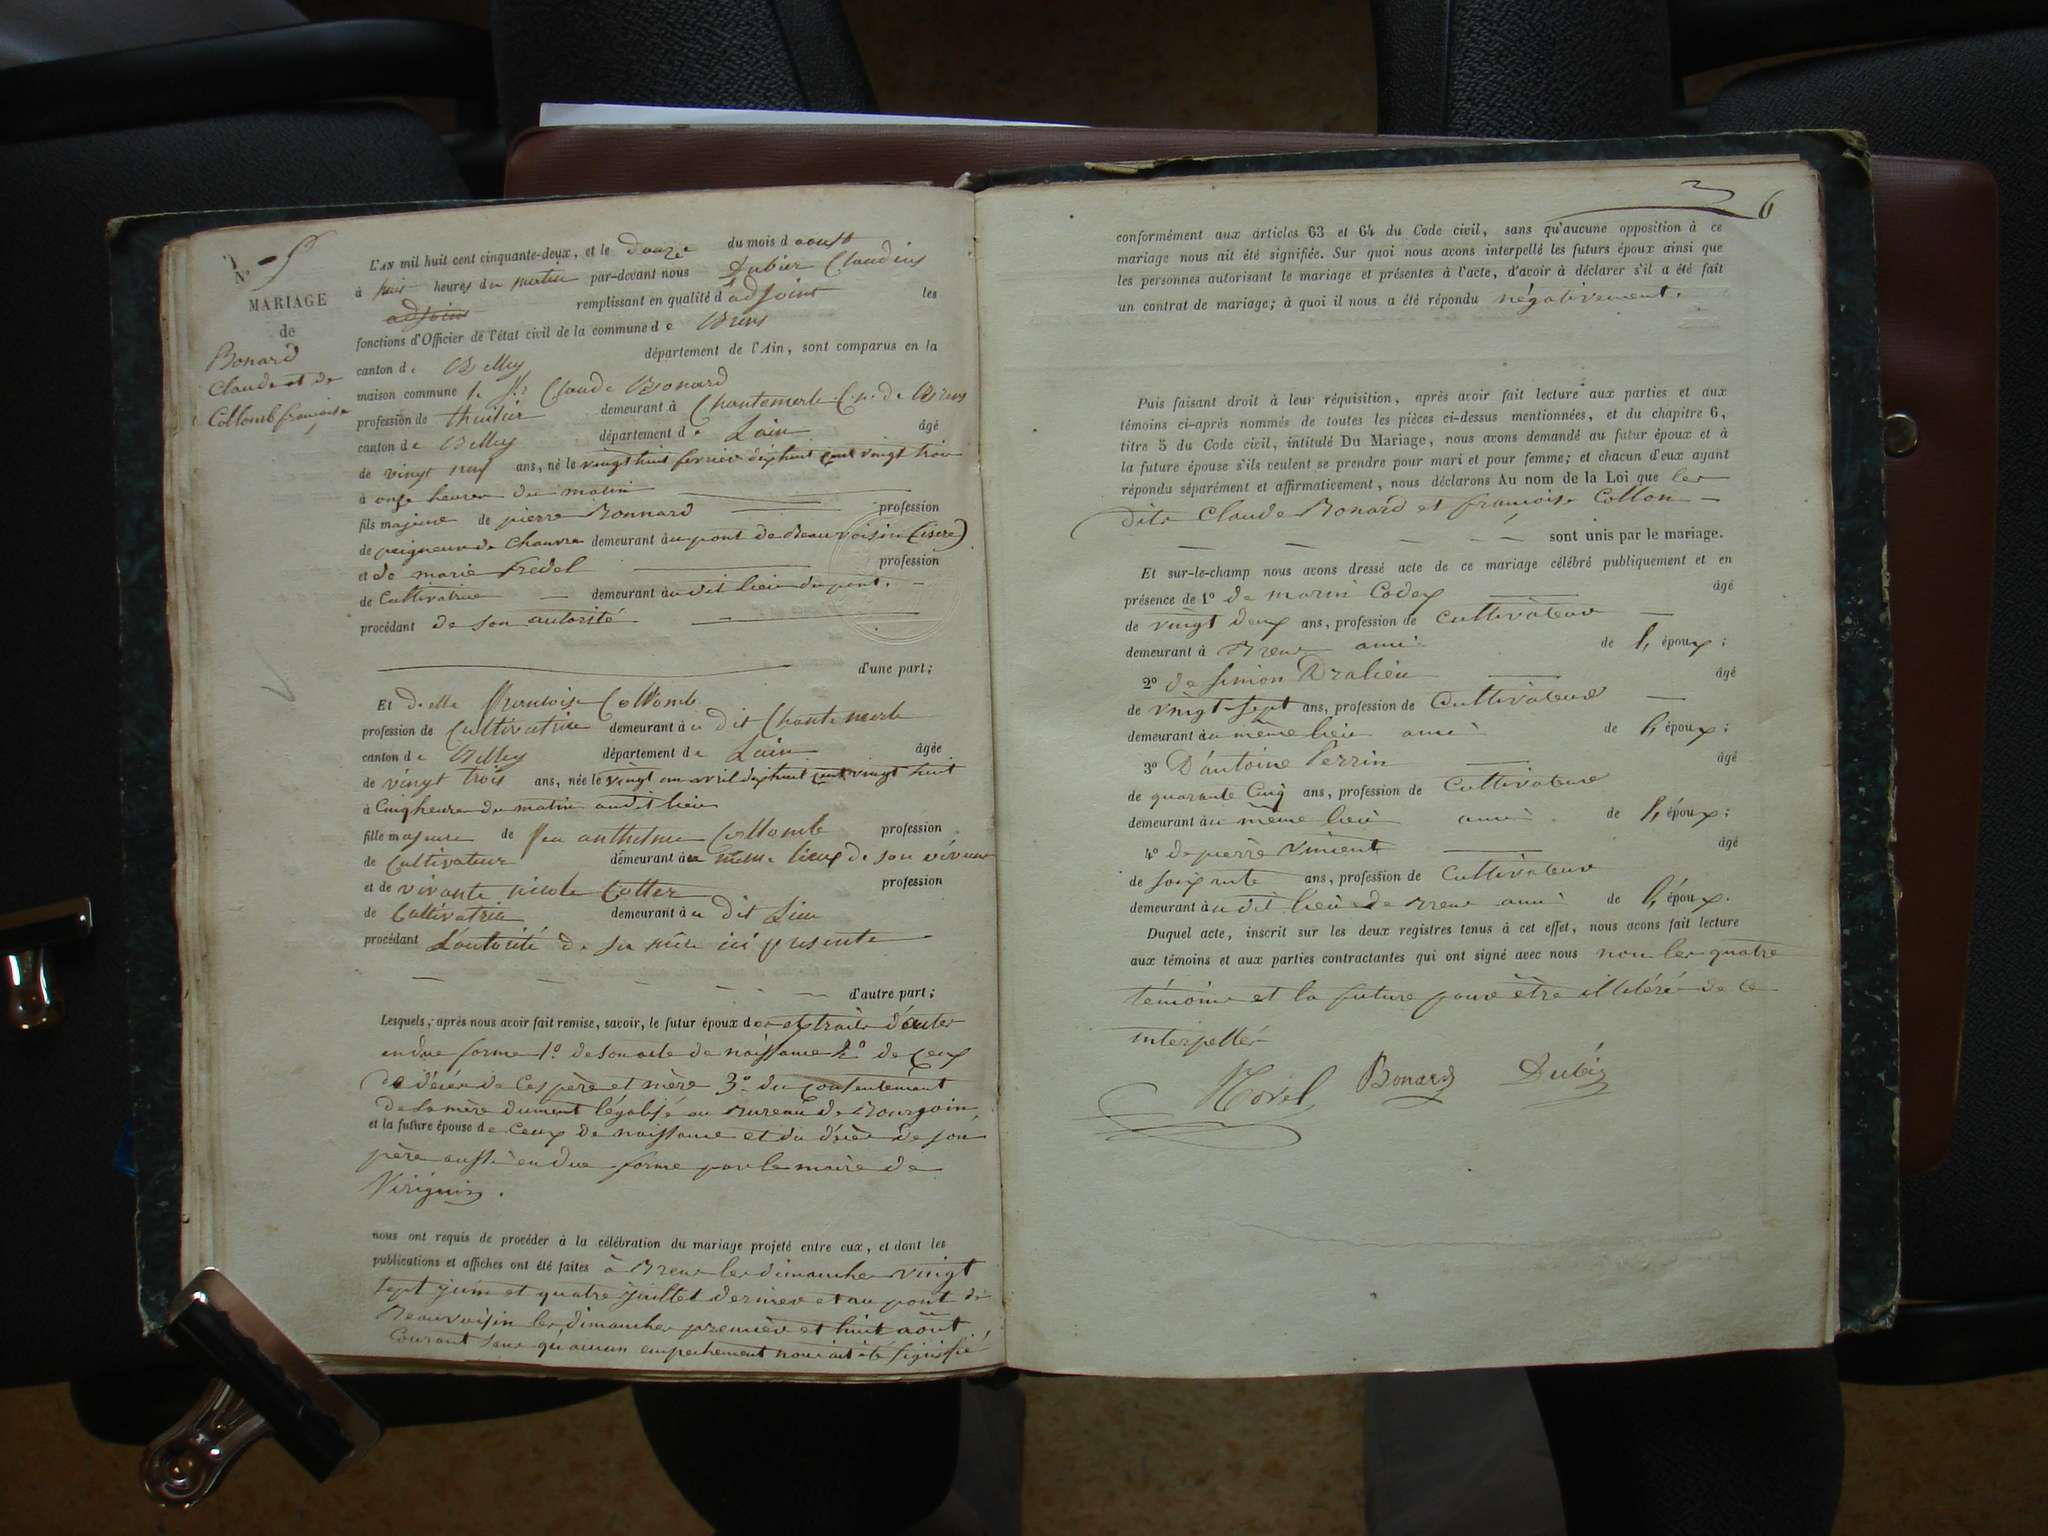 N.º 5
MARIAGE
de
Bonard
Claude et de
Collomb françoise
L'AN mil huit cent cinquante-deux, et le douze du mois d aoust
à huit heures du matin par-devant nous Dubier Claudius
adjoint remplissant en qualité d'adjoint les
fonctions d'Officier de l'état civil de la commune de Brens
canton de Belley département de l'Ain, sont comparus en la
maison commune le Sr Claude Bonard
profession de thuilier demeurant à Chantemerle Cne de Brens
canton de Belley département de Lain âgé
de vingt neuf ans, né le vingt huit fevrier dix huit cent vingt trois
à onze heures du matin
fils majeur de pierre Bonnard profession
de peigneur de Chanvre demeurant au pont de Beauvoisin (isère)
et de marie fredel profession
de Cultivatrice demeurant au dit lieu du pont.
procédant de son autorité
d'une part;
Et delle françoise Collomb
profession de Cultivatrice demeurant au dit Chantemerle
canton de Belley département de Lain âgée
de vingt trois ans, née le vingt un avril dix huit cent vingt huit
à Cinq heures du matin audit lieu
fille majeure de feu anthelme Collomb profession
de Cultivateur demeurant au même lieux de son vivant
et de vivante nicole Cottex profession
de Cultivatrice demeurant au dit Lieu
procédant L'autorité de sa mère ici présente
d'autre part;
Lesquels, après nous avoir fait remise, savoir, le futur époux des extraits d'actes
en due forme 1º de son acte de naissance 2º de Ceux
de décès de Ces père et mère 3º du Consentement
de la mère dument légalisé au Bureau de Bourgoin
et la future épouse de Ceux de naissance et du décès de son
père aussi en due forme par le maire de
Virignin.
nous ont requis de procéder à la célébration du mariage projeté entre eux, et dont les
publications et affiches ont été faites à Brens les dimanches vingt
sept juin et quatre juillet dernier et au pont de
Beauvoisin les dimanches premier et huit août
Courant sans qu'aucun empechement nous ait été signifié
6
conformément aux articles 63 et 64 du Code civil, sans qu'aucune opposition à ce
mariage nous ait été signifiée. Sur quoi nous avons interpellé les futurs époux ainsi que
les personnes autorisant le mariage et présentes à l'acte, d'avoir à déclarer s'il a été fait
un contrat de mariage; à quoi il nous a été répondu négativement.
Puis faisant droit à leur réquisition, après avoir fait lecture aux parties et aux
témoins ci-après nommés de toutes les pièces ci-dessus mentionnées, et du chapitre 6,
titre 5 du Code civil, intitulé Du Mariage, nous avons demandé au futur époux et à
la future épouse s'ils veulent se prendre pour mari et pour femme; et chacun d'eux ayant
répondu séparément et affirmativement, nous déclarons Au nom de la Loi que les
dits Claude Bonard et françoise Collon
sont unis par le mariage.
Et sur-le-champ nous avons dressé acte de ce mariage célébré publiquement et en
présence de 1º de marin Codex âgé
de vingt deux ans, profession de Cultivateur
demeurant à Brens ami de l'époux;
2º de Simon Dralieu âgé
de vingt sept ans, profession de Cultivateur
demeurant au même lieu ami de l'époux;
3º D'antoine Perrin âgé
de quarante Cinq ans, profession de Cultivateur
demeurant au même lieu ami de l'époux;
4º de pierre Vincent âgé
de soixante ans, profession de Cultivateur
demeurant au dit lieu de Brens ami de l'époux.
Duquel acte, inscrit sur les deux registres tenus à cet effet, nous avons fait lecture
aux témoins et aux parties contractantes qui ont signé avec nous non les quatre
témoins et la future pour être illitéré de ce
interpellés
Bonard Dubier